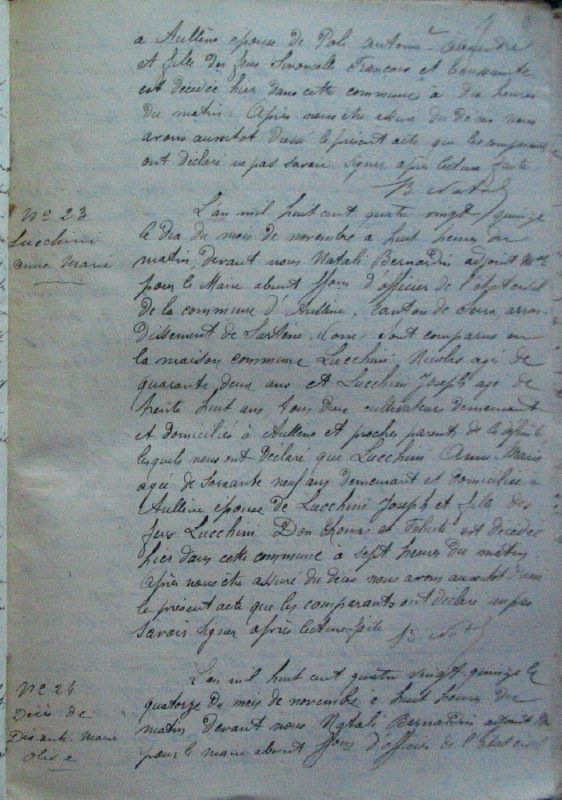 a Aullène epouse de Poli Antoine
et fille des feus François et Toussainte
est decedée hier dans cette commune a dix heures
du matin. Après nous etre assure du deces nous
avons aussitot dressé le present acte que les comparants
ont déclaré ne pas savoir signer après lecture faite
Nº 23
Lucchini
anne Marie
L'an mil huit cent quatre vingt quinze
le dix du mois de novembre a huit heures du
matin devant nous Natali Bernardin adjoint
pour le Maire absent ffons d'officier de l'etat civil
de la commune d'Aullène, canton de Serra arron-
dissement de Sartène, Corse, sont comparus en
la maison commune Lucchini Nicolas agé de
quarante deux ans et Lucchini Joseph age de
trente huit ans tous deux cultivateurs demeurant
et domiciliés à Aullène et proches parents de la défunte
lesquels nous ont déclaré que Lucchini Anne Marie
agée de soixante neuf ans demeurant et domiciliée a
Aullène épouse de Lucchini Joseph et fille des
feus Lucchini Don et Félicité est décédée
hier dans cette commune à sept heures du matin
Après nous etre assuré du décès nous avons aussitot dressé
le present acte que les comparants ont déclaré ne pas
savoir signer après lecture faite
Nº 24
Décès de
marie
L'an mil huit cent quatre vingt quinze le
quatorze du mois de novembre a huit heures du
matin devant nous Natali Bernardin adjoint
pour le maire absent ffons d'officier de l'etat civil